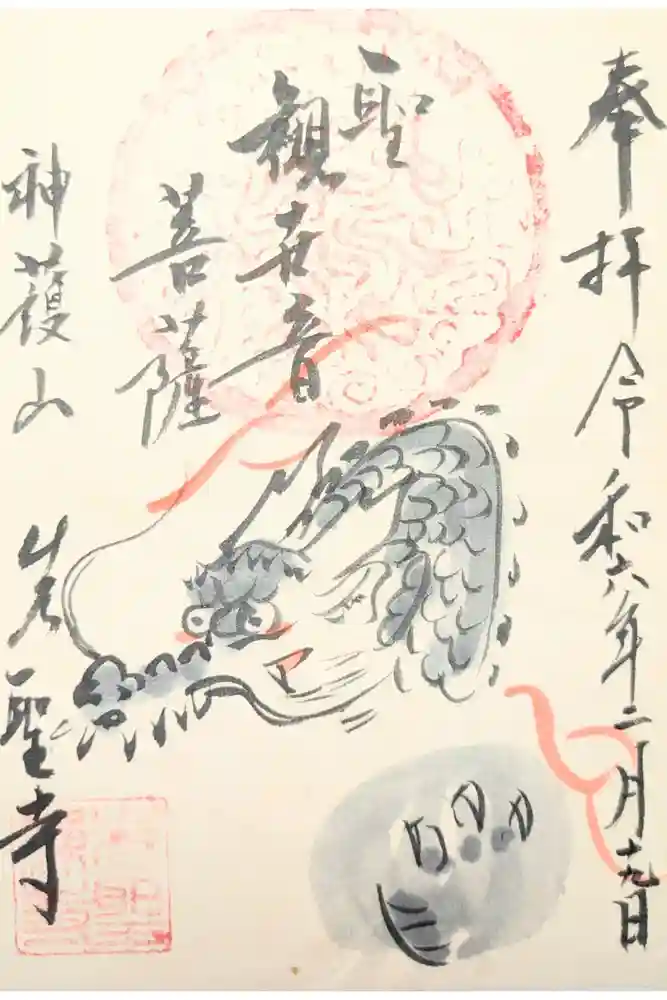 奉拝 令和六年二月十九日
聖
觀世音
菩薩
神護山
岩聖寺